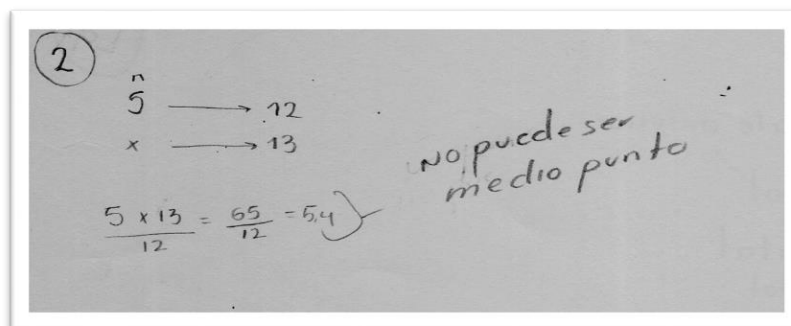 2
n
5 → 12
x → 13
5 x 13 / 12 = 65 / 12 = 5,4 }
No puede ser
medio punto